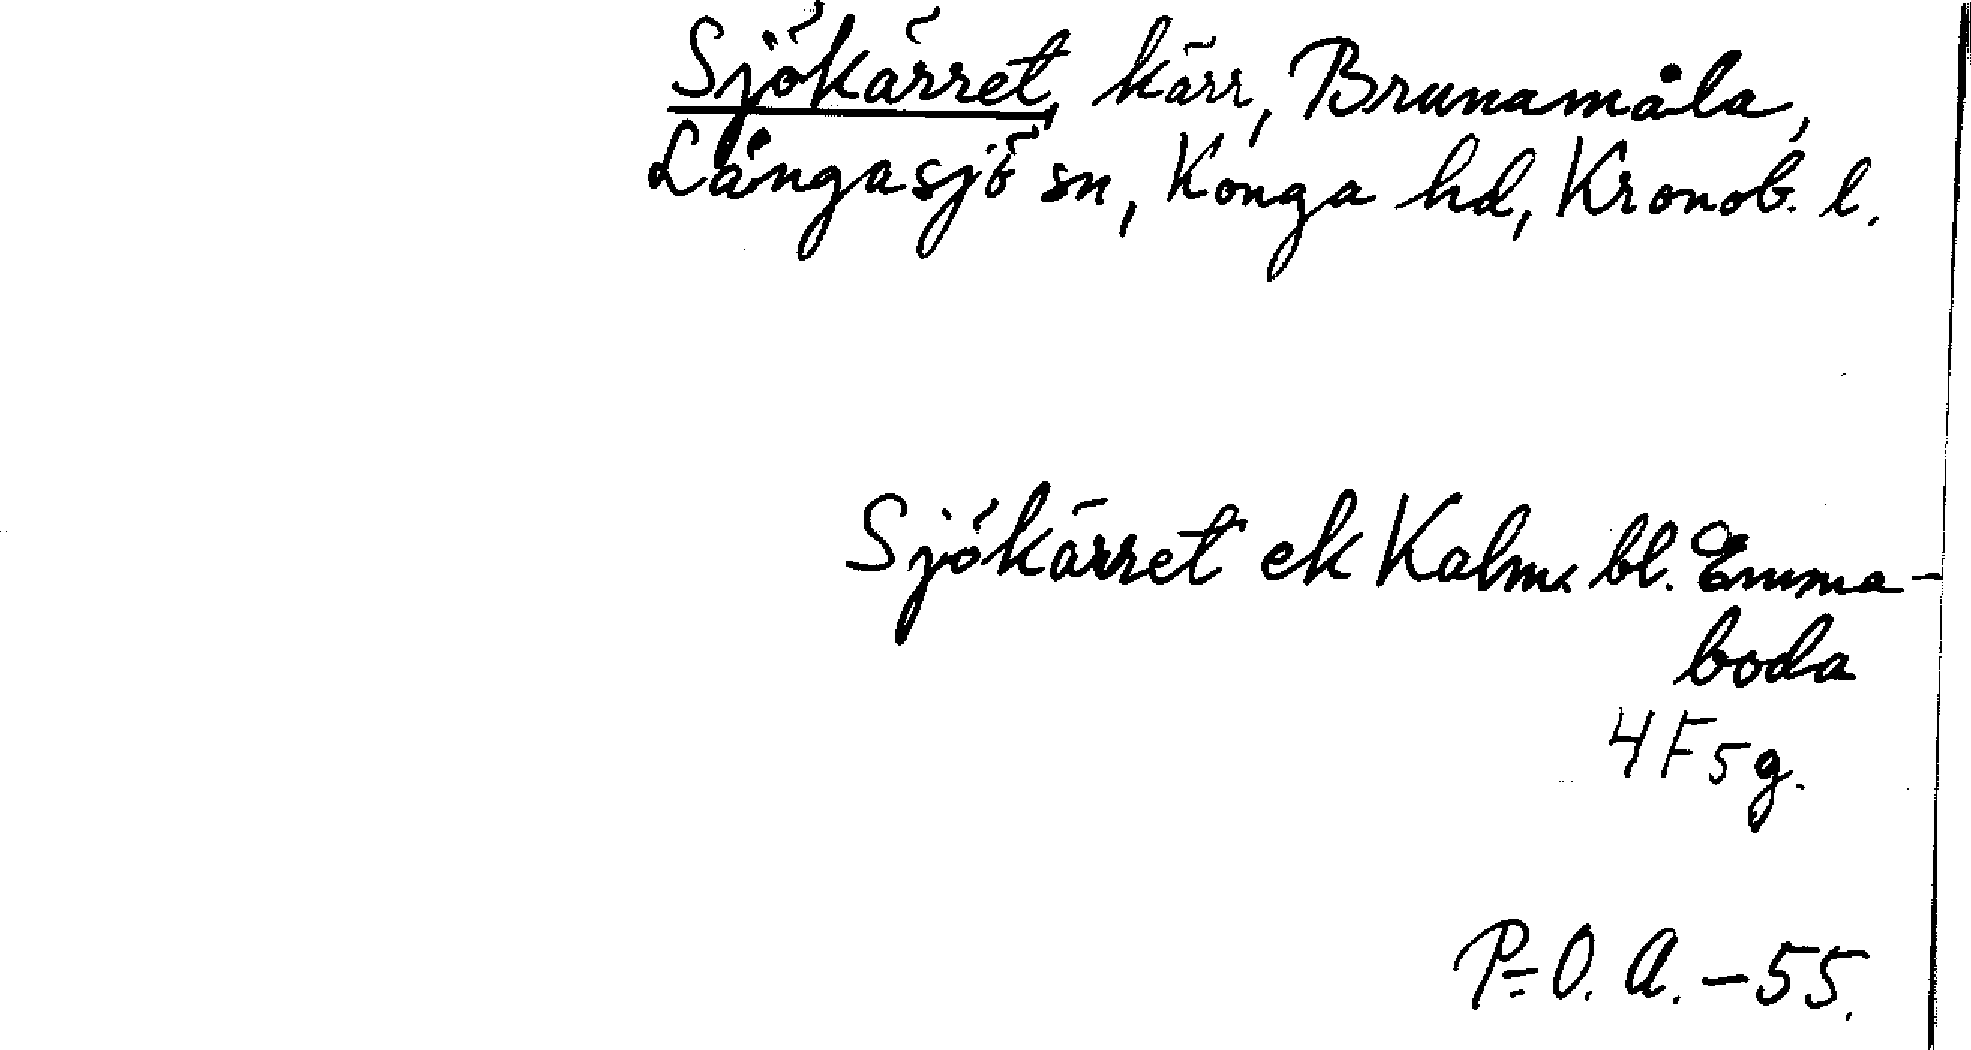 Sjökärret, kärr, Brunamåla,
Långasjö sn, Konga hd, Kronob. l.
Sjökärret ek Kalm. bl. Emma-
boda
4F5g.
P=O. A. -55.